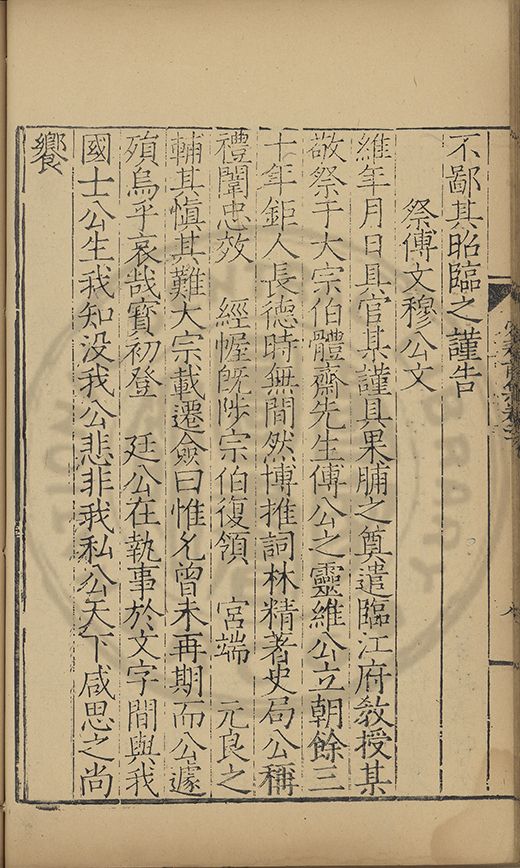 不鄙其昭臨之謹告
祭傅文穆公文
維年月日具官某謹具果脯之奠遣臨江府教授某
敬祭于大宗伯體齋先生傅公之靈維公立朝餘三
十年鉅人長德時無間然博推詞林精著史局公稱
禮闈忠效 經幄既陟宗伯復領 宮端 元良之
輔其慎其難大宗載遷僉曰惟允曾未再期而公遽
殞烏乎哀哉寶初登 廷公在執事於文字間與我
國士公生我知没我公悲非我私公天下咸思之尚
饗